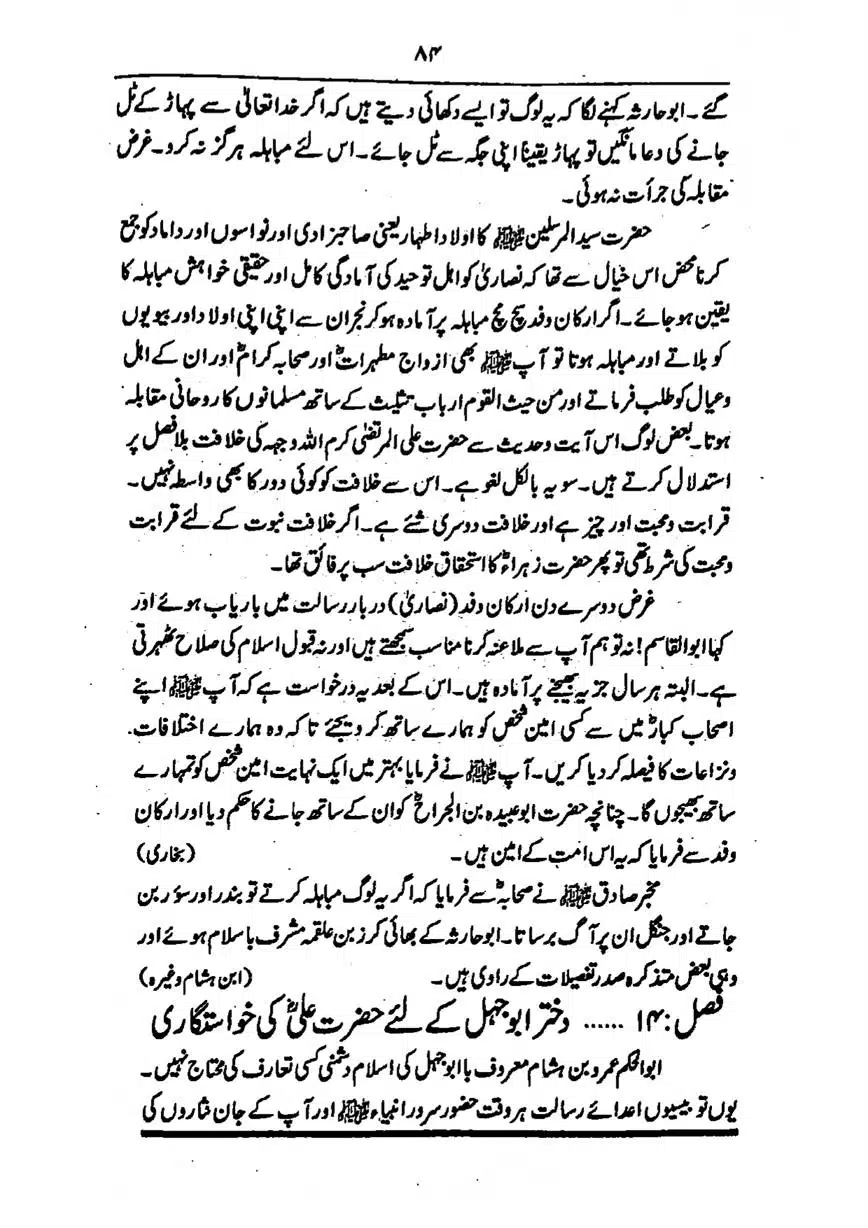 ۸۴
گئے۔ ابو حارثہ کہنے لگا کہ یہ لوگ تو ایسے دکھائی دیتے ہیں کہ اگر خدا تعالیٰ سے پہاڑ کے ٹل
جانے کی دعا مانگیں تو پہاڑ یقیناً اپنی جگہ سے ٹل جائے۔ اس لئے مباہلہ ہرگز نہ کرو۔ غرض
مقابلہ کی جرأت نہ ہوئی۔
حضرت سید المرسلین ﷺ کا اولاد اطہار یعنی صاحبزادی اور نواسوں اور داماد کو جمع
کرنا محض اس خیال سے تھا کہ نصاریٰ کو اہل توحید کی آمادگی کامل اور حقیقی خواہش مباہلہ کا
یقین ہو جائے۔ اگر ارکان وفد سچ مچ مباہلہ پر آمادہ ہو کر نجران سے اپنی اپنی اولاد اور بیویوں
کو بلاتے اور مباہلہ ہوتا تو آپ ﷺ بھی ازواج مطہراتؓ اور صحابہ کرامؓ اور ان کے اہل
وعیال کو طلب فرماتے اور من حیث القوم ارباب تثلیث کے ساتھ مسلمانوں کا روحانی مقابلہ
ہوتا۔ بعض لوگ اس آیت وحدیث سے حضرت علی المرتضیٰ کرم اللہ وجہہ کی خلافت بلا فصل پر
استدلال کرتے ہیں۔ سو یہ بالکل لغو ہے۔ اس سے خلافت کو کوئی دور کا بھی واسطہ نہیں۔
قرابت ومحبت اور چیز ہے اور خلافت دوسری شئے ہے۔ اگر خلافت نبوت کے لئے قرابت
ومحبت کی شرط تھی تو پھر حضرت زہراءؓ کا استحقاق خلافت سب پر فائق تھا۔
غرض دوسرے دن ارکان وفد (نصاریٰ) دربار رسالت میں باریاب ہوئے اور
کہا ابو القاسم! نہ تو ہم آپ سے ملاعنہ کرنا مناسب سمجھتے ہیں اور نہ قبول اسلام کی صلاح ٹھہرتی
ہے۔ البتہ ہر سال جزیہ بھیجنے پر آمادہ ہیں۔ اس کے بعد یہ درخواست ہے کہ آپ ﷺ اپنے
اصحاب کبارؓ میں سے کسی امین شخص کو ہمارے ساتھ کر دیجئے تاکہ وہ ہمارے اختلافات
ونزاعات کا فیصلہ کر دیا کریں۔ آپ ﷺ نے فرمایا بہتر میں ایک نہایت امین شخص کو تمہارے
ساتھ بھیجوں گا۔ چنانچہ حضرت ابو عبیدہ بن الجراحؓ کو ان کے ساتھ جانے کا حکم دیا اور ارکان
وفد سے فرمایا کہ یہ اس امت کے امین ہیں۔ (بخاری)
مخبر صادق ﷺ نے صحابہؓ سے فرمایا کہ اگر یہ لوگ مباہلہ کرتے تو بندر اور سؤر بن
جاتے اور جنگل ان پر آگ برساتا۔ ابو حارثہ کے بھائی کرز بن علقمہ مشرف باسلام ہوئے اور
وہی بعض متذکرہ صدر تفصیلات کے راوی ہیں۔ (ابن ہشام وغیرہ)
فصل:۱۴ ...... دختر ابو جہل کے لئے حضرت علیؓ کی خواستگاری
ابو الحکم عمرو بن ہشام معروف باابو جہل کی اسلام دشمنی کسی تعارف کی محتاج نہیں۔
یوں تو بیسیوں اعدائے رسالت ہر وقت حضور سرور انبیاء ﷺ اور آپ کے جان نثاروں کی